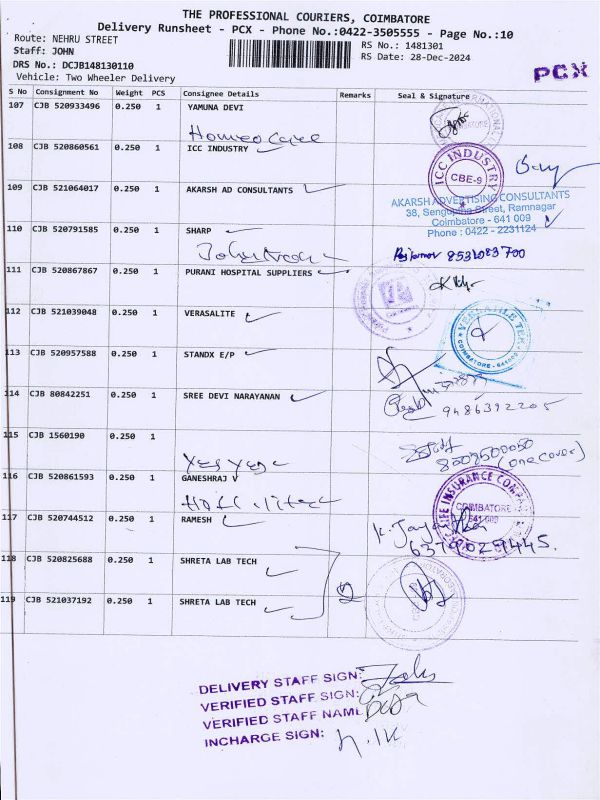 THE PROFESSIONAL COURIERS, COIMBATORE
Delivery Runsheet - PCX - Phone No.:0422-3505555 - Page No.:10
Route: NEHRU STREET
RS No.: 1481301
Staff: JOHN
RS Date: 28-Dec-2024
DRS No.: DCJB148130110
PCX
Vehicle: Two Wheeler Delivery
S No Consignment No Weight PCS Consignee Details Remarks Seal & Signature
107 CJB 520933496 0.250 1 YAMUNA DEVI
Homeo Care
108 CJB 520860561 0.250 1 ICC INDUSTRY
ICC INDUSTRY
CBE-9
109 CJB 521064017 0.250 1 AKARSH AD CONSULTANTS
AKARSH ADVERTISING CONSULTANTS
38, Sengupta Street, Ramnagar
Coimbatore - 641 009
Phone : 0422 - 2231124
110 CJB 520791585 0.250 1 SHARP
111 CJB 520867867 0.250 1 PURANI HOSPITAL SUPPLIERS
112 CJB 521039048 0.250 1 VERASALITE
113 CJB 520957588 0.250 1 STANDX E/P
114 CJB 80842251 0.250 1 SREE DEVI NARAYANAN
9486392205
115 CJB 1560190 0.250 1
(one cover)
116 CJB 520861593 0.250 1 GANESHRAJ V
LIFE INSURANCE
COIMBATORE
641 009
117 CJB 520744512 0.250 1 RAMESH
118 CJB 520825688 0.250 1 SHRETA LAB TECH
119 CJB 521037192 0.250 1 SHRETA LAB TECH
2
DELIVERY STAFF SIGN:
VERIFIED STAFF SIGN:
VERIFIED STAFF NAME
INCHARGE SIGN: